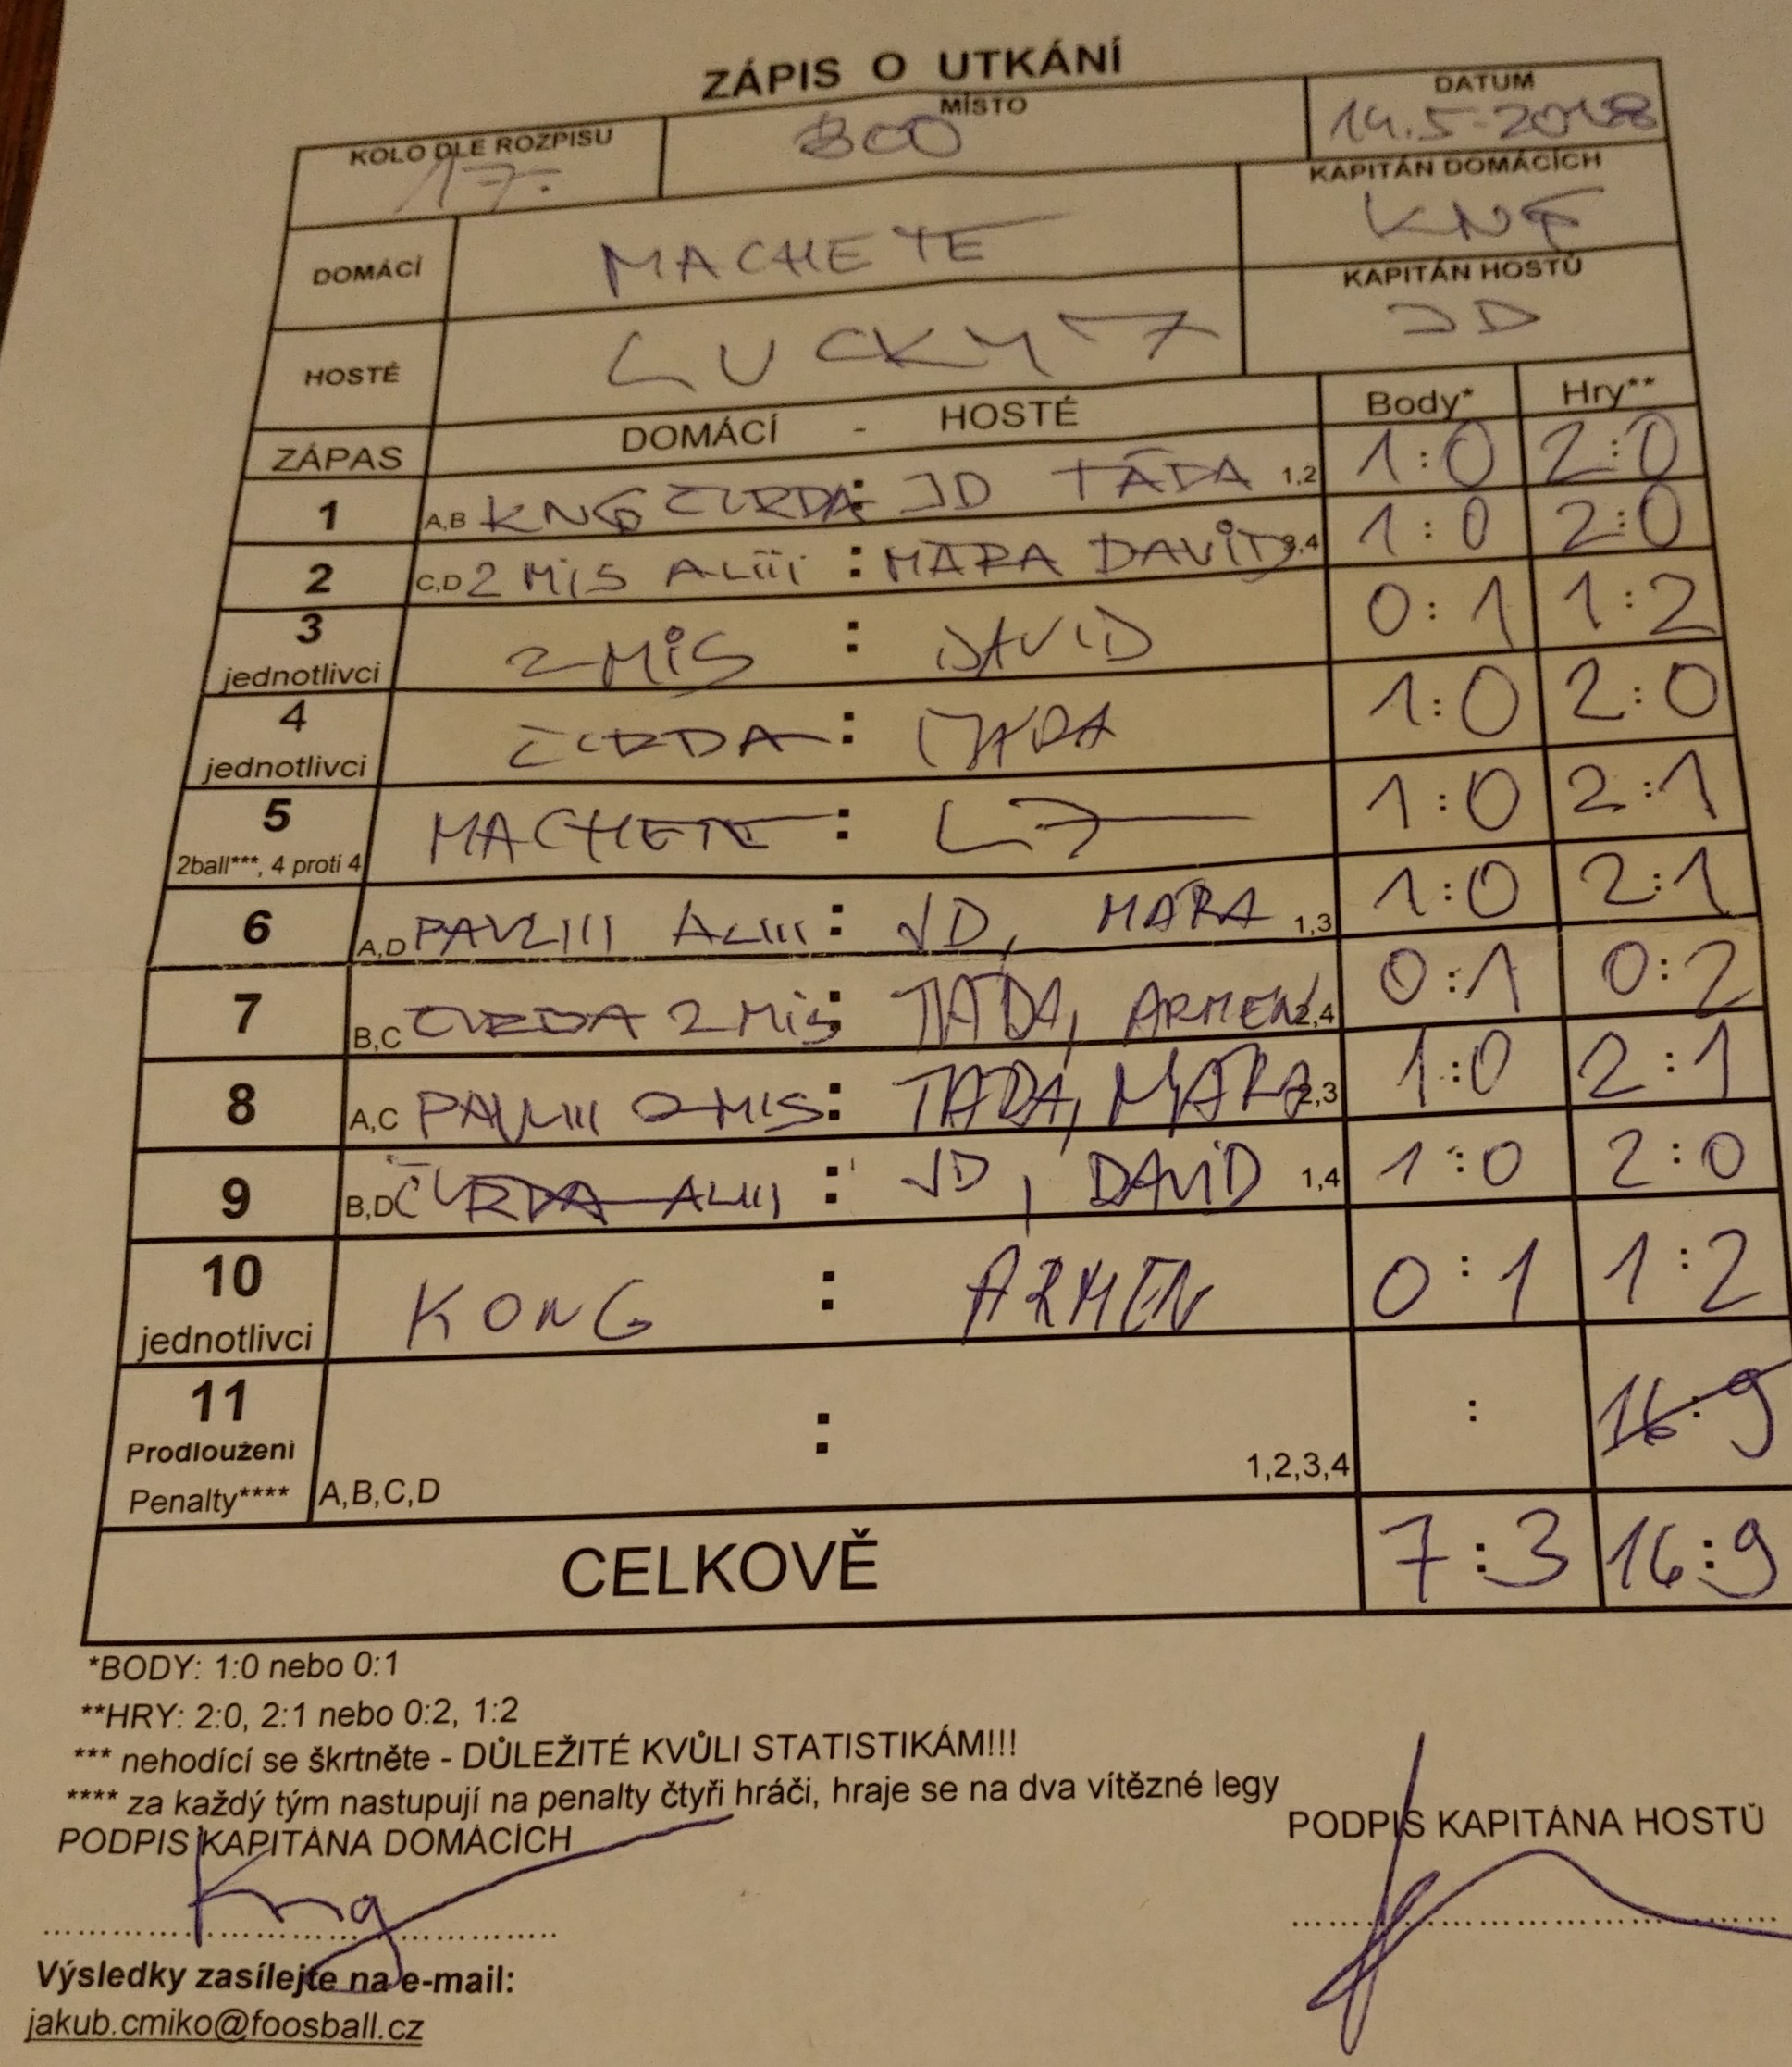 ZÁPIS O UTKÁNÍ
KOLO DLE ROZPISU MÍSTO DATUM
17. BOO 14.5.2018
KAPITÁN DOMÁCÍCH
DOMÁCÍ MACHETE KNG
KAPITÁN HOSTŮ
HOSTÉ LUCKY 7 JD
ZÁPAS DOMÁCÍ - HOSTÉ Body* Hry**
1 A,B KNG ČURDA : JD TÁDA 1,2 1:0 2:0
2 C,D 2 MIS ALIII : MÁRA DAVID 3,4 1:0 2:0
3 jednotlivci 2 MIS : DAVID 0:1 1:2
4 jednotlivci ČURDA : TÁDA 1:0 2:0
5 2ball***, 4 proti 4 MACHETE : L7 1:0 2:1
6 A,D PAVLIII ALIII : JD, MÁRA 1,3 1:0 2:1
7 B,C ČURDA 2 MIS : TÁDA, ARMEN 2,4 0:1 0:2
8 A,C PAVLIII 2 MIS : TÁDA, MÁRA 2,3 1:0 2:1
9 B,D ČURDA ALIII : JD, DAVID 1,4 1:0 2:0
10 jednotlivci KONG : ARMEN 0:1 1:2
11 Prodloužení Penalty**** A,B,C,D : 1,2,3,4 : 16:9
CELKOVĚ 7:3 16:9
*BODY: 1:0 nebo 0:1
**HRY: 2:0, 2:1 nebo 0:2, 1:2
*** nehodící se škrtněte - DŮLEŽITÉ KVŮLI STATISTIKÁM!!!
**** za každý tým nastupují na penalty čtyři hráči, hraje se na dva vítězné legy
PODPIS KAPITÁNA DOMÁCÍCH PODPIS KAPITÁNA HOSTŮ
Kng
Výsledky zasílejte na e-mail:
jakub.cmiko@foosball.cz